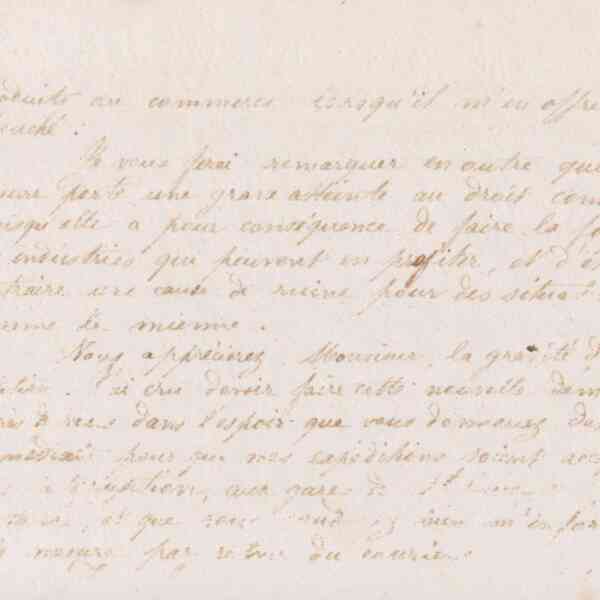 oduits au commerce lorsqu'il m'en offre
bouché.
Je vous ferai remarquer en outre que
sure porte une grave atteinte au droit com
isqu'elle a pour conséquence de faire la fo
industries qui peuvent en profiter, et d'ê
traire une cause de ruine pour des situat
omme la mienne.
Vous apprécierez, Monsieur, la gravité d
J'ai cru devoir faire cette nouvelle dem
près de vous dans l'espoir que vous donnerez de
pour que mes expéditions soient
aux gares de St
et que vous bien m'infor
par retour du courrier